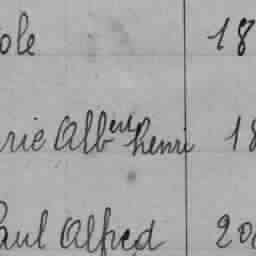 ole 18
rie Albert henri 18
Paul Alfred 20